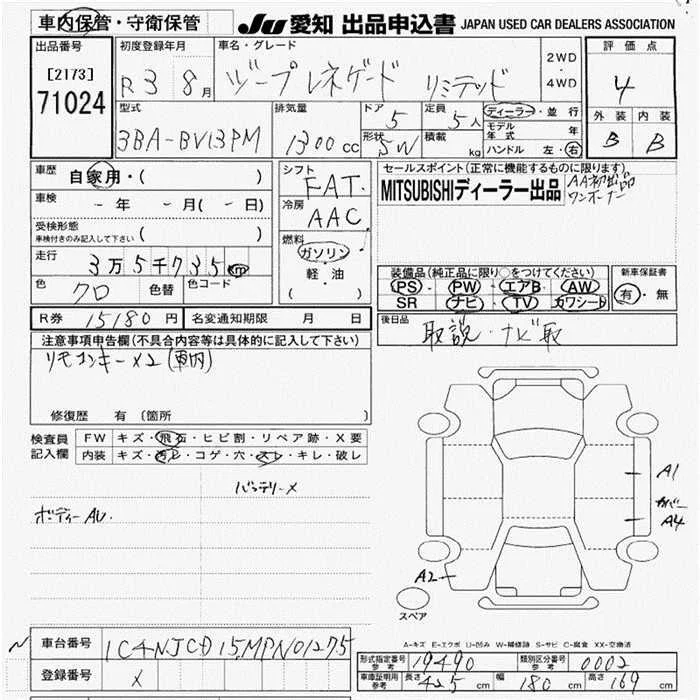 車内保管・守衛保管
JU 愛知 出品申込書 JAPAN USED CAR DEALERS ASSOCIATION
出品番号
[2173]
71024
初度登録年月
R3 8月
車名・グレード
ジープ レネゲード リミテッド
2WD
・
4WD
評価点
4
型式
3BA-BV13PM
排気量
1300cc
ドア
5
定員
5人
形状
5W
積載
kg
ディーラー・並行
モデル年式 年
ハンドル 左・右
外装 内装
B B
車歴
自家用・( )
車検
- 年 - 月( - 日)
受検形態
車検付きのみ記入して下さい ( )
走行
3万5千735km
色
クロ
色替
色コード
シフト
FAT
冷房
AAC
燃料
ガソリン
軽・油
( )
セールスポイント(正常に機能するものに限ります)
MITSUBISHIディーラー出品
AA初出品
ワンオーナー
装備品(純正品に限り○をつけてください)
PS・PW・エアB・AW
SR ナビ・TV カワシート
新車保証書
有・無
R券 15180円
名変通知期限 月 日
後日品
取説・ナビ取
注意事項申告欄(不具合内容等は具体的に記入して下さい)
リモコンキー×2(車内)
修復歴 有(箇所
検査員記入欄
FW キズ・飛石・ヒビ割・リペア跡・X要
内装 キズ・汚レ・コゲ・穴・スレ・キレ・破レ
バッテリー×
ボディーAU.
A1
カバー
A4
A2
スペア
A-キズ E-エクボ U-凹み W-補修跡 S-サビ C-腐食 XX-交換済
車台番号
1C4NJCD15MPN01275
登録番号
×
形式指定番号 参考
19490
類別区分番号 参考
0002
車庫証明用 参考
長さ 425cm 幅 180cm 高さ 169cm